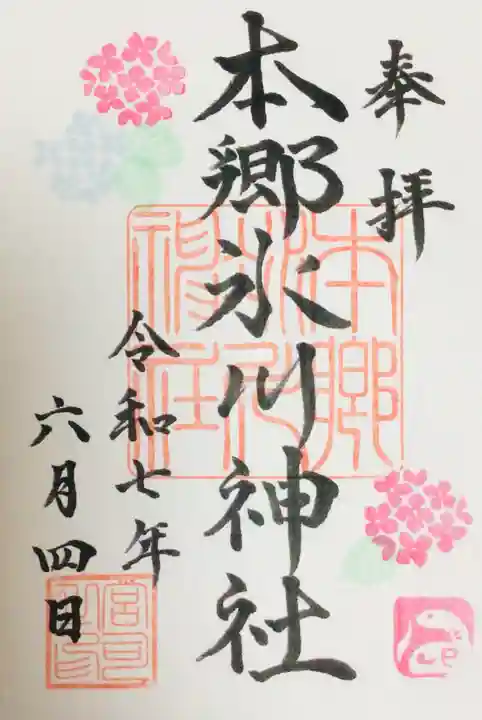 奉拝
本郷氷川神社
令和七年
六月四日
本郷
氷川
神社
宮司
之印
巳